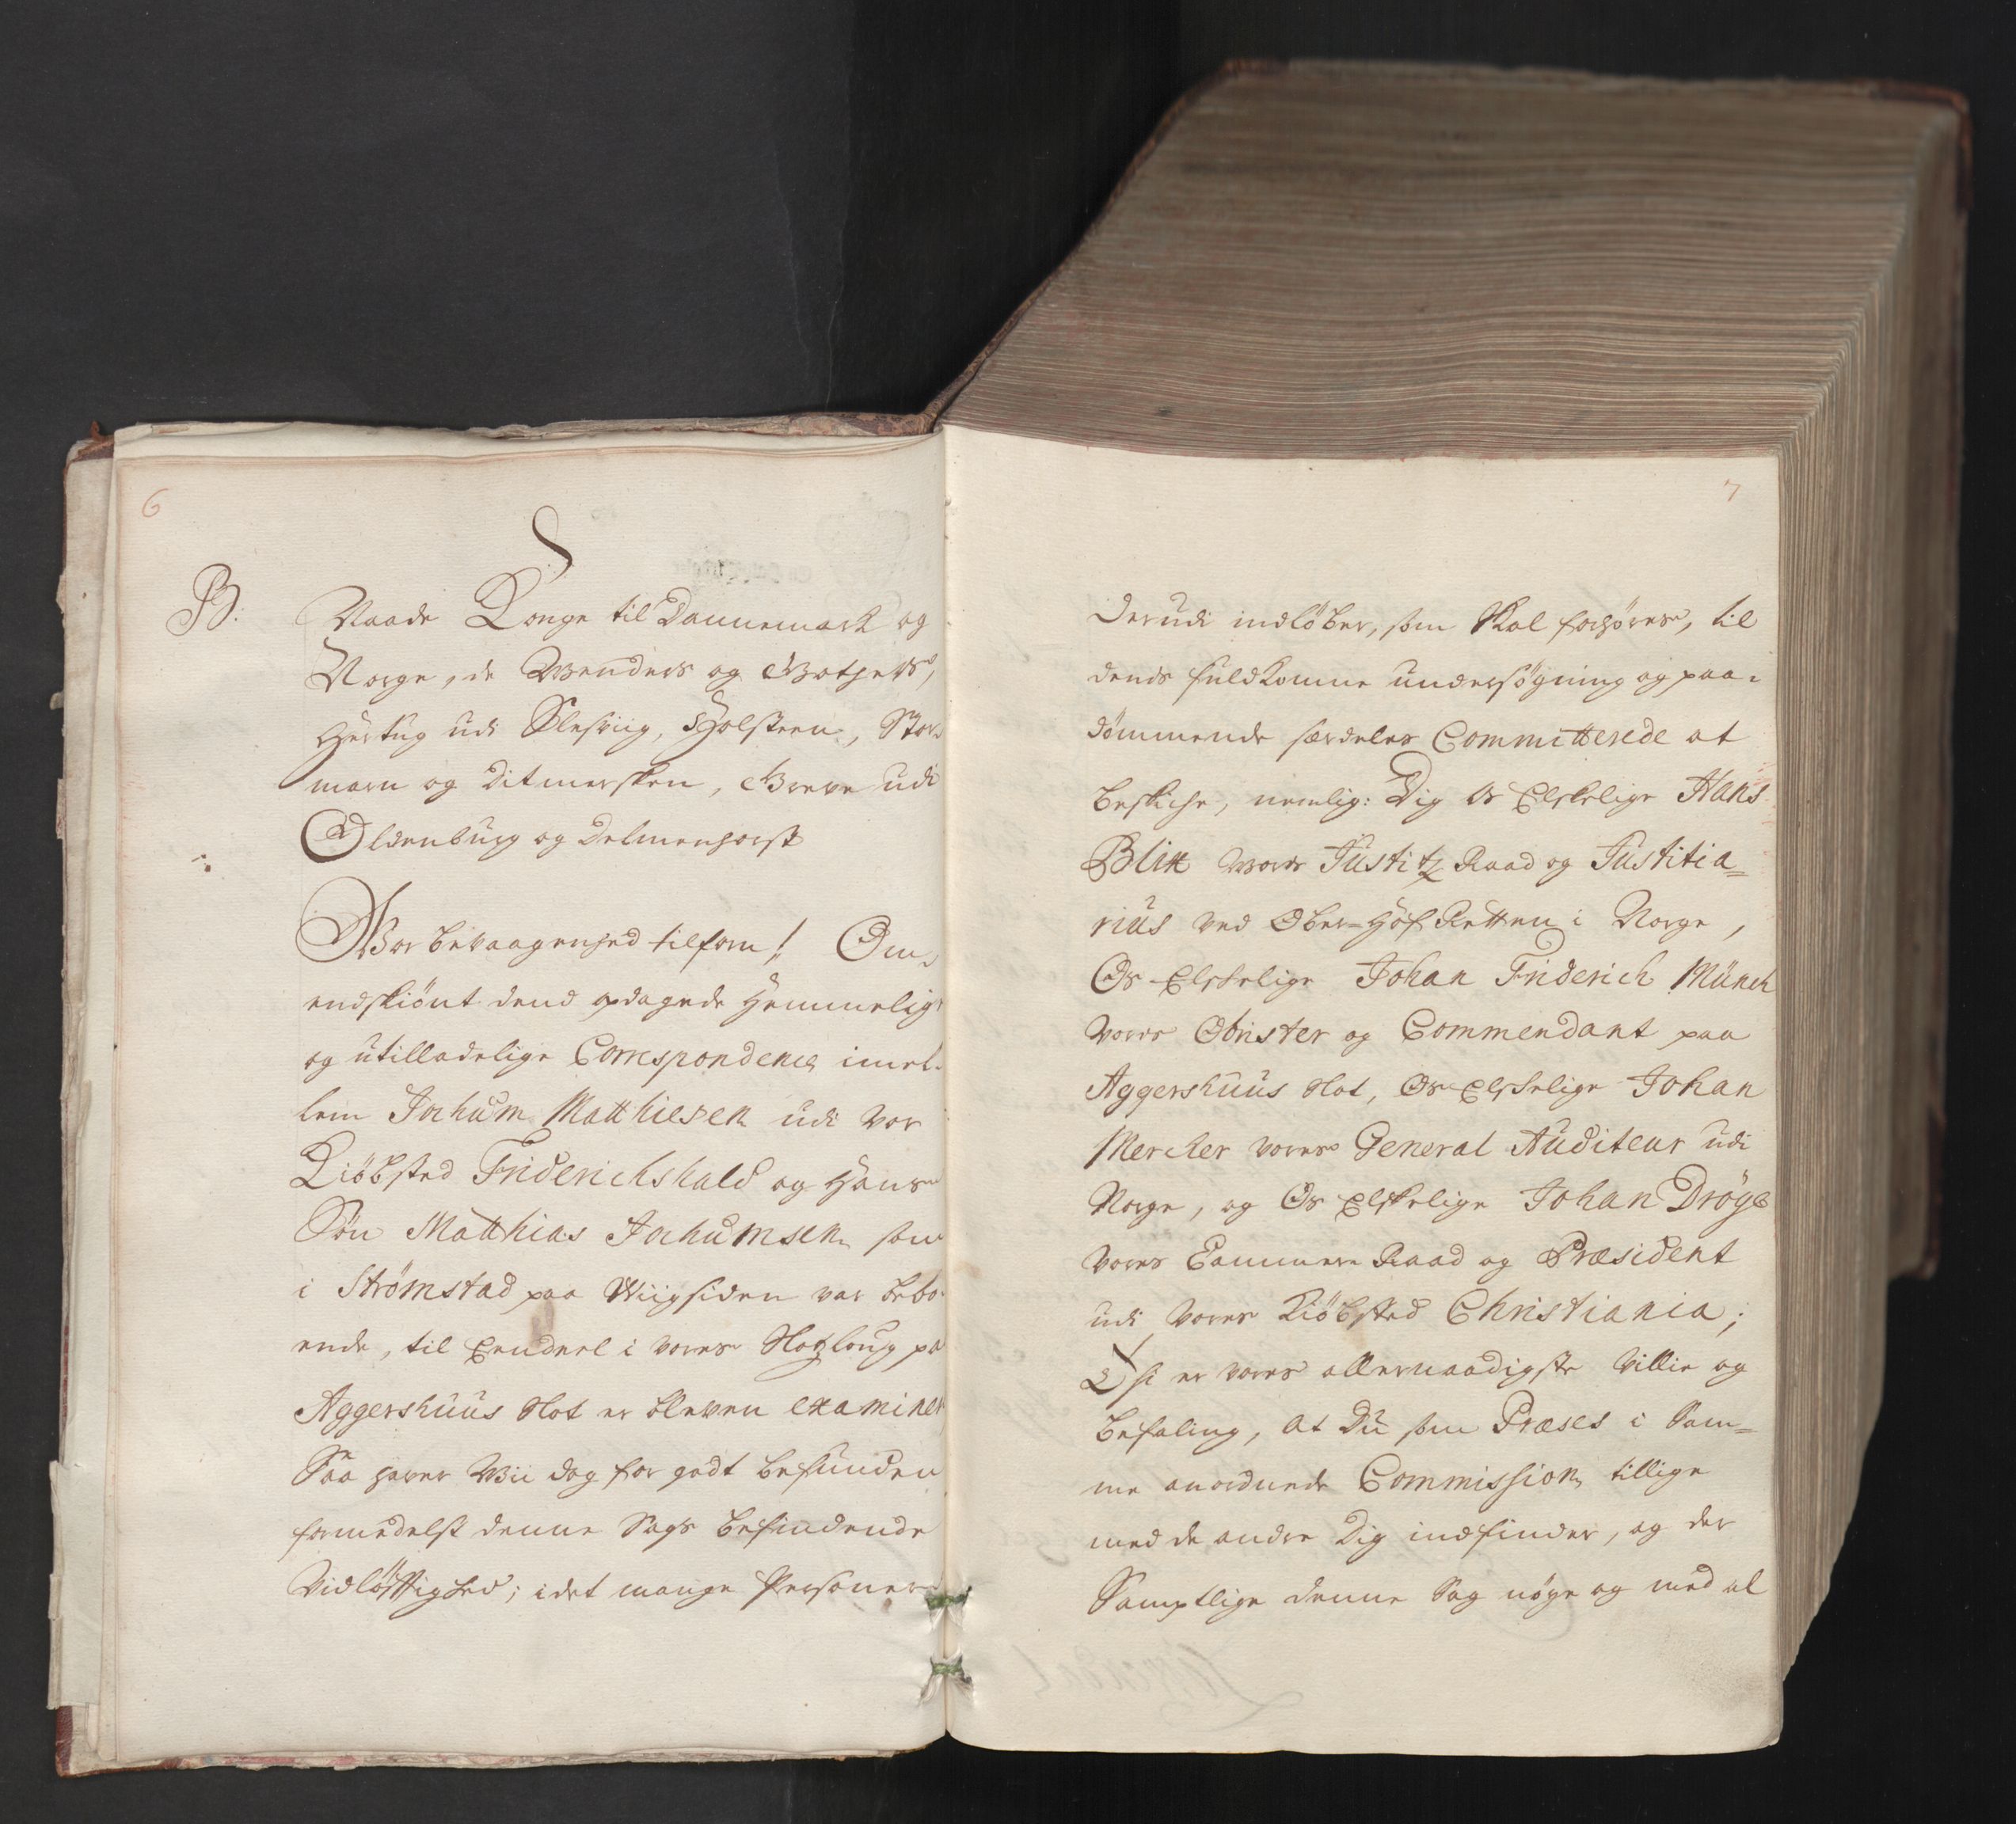 6
B:
Naade Konge til Dannemark og
Norge, de Wenders og Gothers,
Hertug udi Slesviig, Holsteen, Stor-
marn og Ditmersken, Greve udi
Oldenburg og Delmenhorst
Wor bevaagenhed tilforn! Om-
endskiönt dend opdagede hemmelig
og utilladelige Correspondence imel-
lem Jochum Matthiesen udi vor
Kiöbsted Friderichshald og hans
Sön Matthias Jochumsen som
i Strömstad paa Wiigsiden var bebo-
ende, til Eendeel i vores Slotzloug pa
Aggershuus Slot er bleven examiner
Saa haver Wii dog for godt befunden
formedelst denne Sags befindende
Vidlöftighed; i det mange Personer
7
derudi indlöber, som skal forhöres, til
dends fuldkomne undersögning og paa-
dömmende særdeles Committerede at
beskiche, nemlig: Dig Os Elskelige Hans
Blix Vores Justitz Raad og Justitia-
rius ved Ober-Hof-Retten i Norge,
Os Elskelige Johan Friderich Münch
Vores Obrister og Commendant paa
Aggershuus Slot, Os Elskelige Johan
Mercker vores General Auditeur udi
Norge, og Os Elskelige Johan Dröge
vores Cammer Raad og Præsident
udi Vores Kiöbsted Christiania;
Thi er vores allernaadigste Villie og
befaling, at Du som Præses i Sam-
me anordnede Commission tillige
med de andre Dig indfinder, og der
Samptlige denne Sag nöye og med al